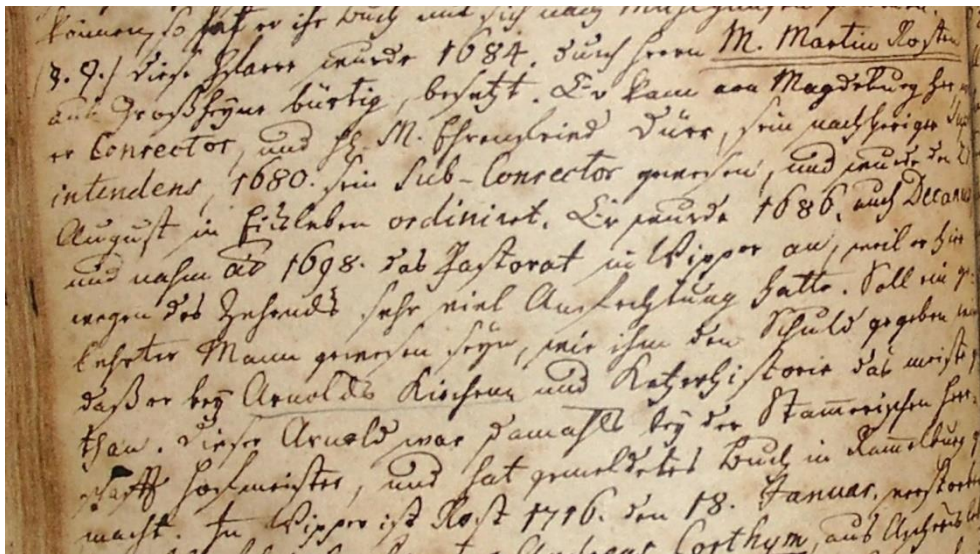 können, so hat er ihr Buch mit sich nach
(3. 9.) Diese Pfarre wurde 1684. durch Herrn M. Martin Rosten
aus Großheyne bürtig, besetzt. Er kam von Magdeburg her,
er Conrector, und H. M. Ehrenfried Dürr, sein nachheriger
intendens, 1680. sein Sub-Conrector gewesen, und wurde den
August in Eisleben ordiniret. Er wurde 1686. auch Decanus
und nahm ao 1698. das Pastorat in Wipper an, weil er hier
wegen des Zehends sehr viel Anfechtung hatte. Soll ein ge-
lehrter Mann gewesen seyn, wie ihm den Schuld gegeben
daß er bey Arnolds Kirchen und Ketzerhistorie das meiste
than. Dieser Arnold war damahls bey der Stam̄erischen Herr-
schafft Hofmeister, und hat gemeldetes Buch in Ram̄elburg
macht. In Wipper ist Rost 1716. den 18. Januar. verstorben
Andreas Corthym, aus